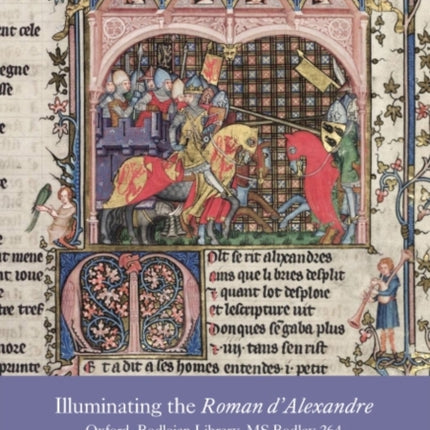 ent cele
egne
mene
ent roue
tre tref
more
prunte
Olt se rit alixandres
ains que li bries desplut
quant lot desploie
et lescripture uit
Donques se gaba plus
iiij. tans sen rist
Et a dit a ses homes entendes i. petit
Illuminating the Roman d'Alexandre
Oxford, Bodleian Library, MS Bodley 264